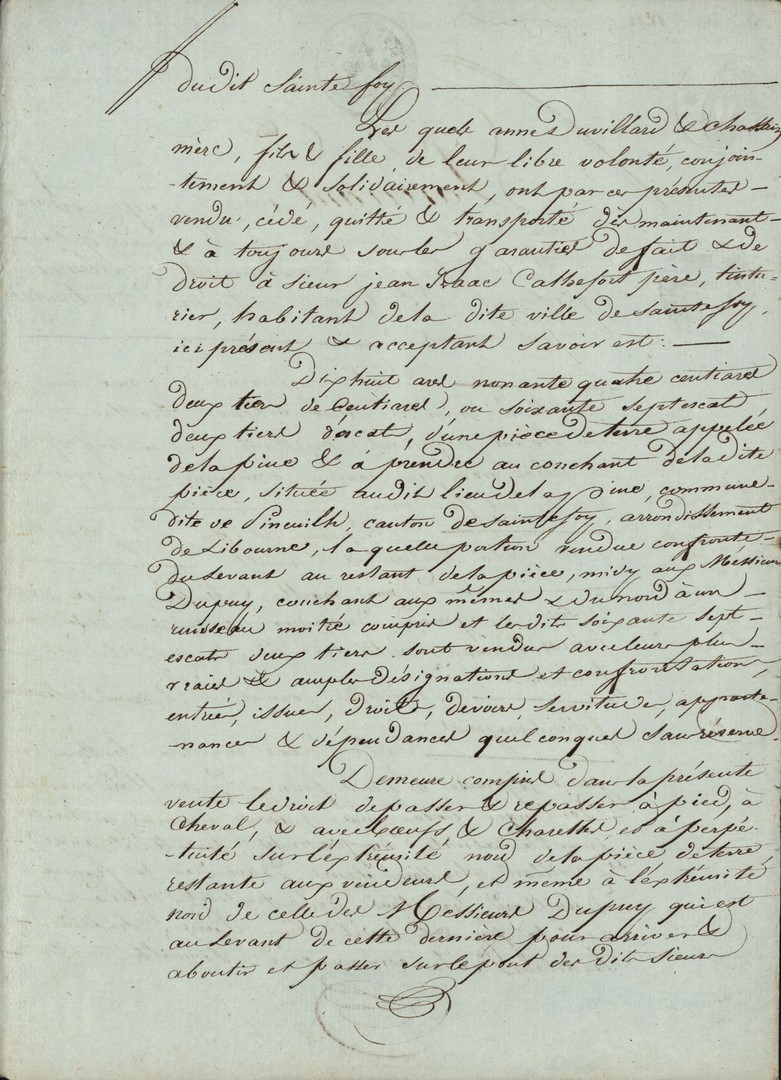 du dit Sainte foy
Les quels annes Duvillard & Chassin
mère, fils & fille de leur libre volonté, conjoin-
-tement & solidairement, ont par ces présentes
vendu, cédé, quitté & transporté dès maintenant
& à toujours sous les garanties de fait & de
droit à sieur jean Isaac Cathefort père, tintu-
rier, habitant de la dite ville de Sainte foy,
ici présent & acceptant Savoir est :
Dix huit ares nonante quatre centiares
deux tiers de Centiares, ou soixante sept escats
deux tiers d'escat, d'une pièce de terre appelée
de la pine & à prendre au couchant de la dite
pièce, située audit lieu de la pine, commune
dite de Pineuilh, canton de Sainte foy, arrondissement
de Libourne, la quelle portion vendue confronte
du Levant au restant de la pièce, midy aux Messieurs
Dupuy, couchant aux mêmes & du nord à un
ruisseau moitié compris et les dits soixante sept
escats deux tiers sont vendus avec leurs plus
vraies & amples désignations et confrontations,
entrées, issues, droits, devoirs, servitudes, apparte-
-nances & dépendances quelconques sans réserve.
Demeure compris dans la présente
vente le droit de passer & repasser à pied, à
Cheval, & avec Bœufs & Charettes et à perpé-
-tuité sur l'extrémité nord de la pièce de terre
restante aux vendeurs, et même à l'extrémité
nord de celle des Messieurs Dupuy qui est
au Levant de cette dernière pour arriver &
aboutir et passer sur le pont des dits sieurs